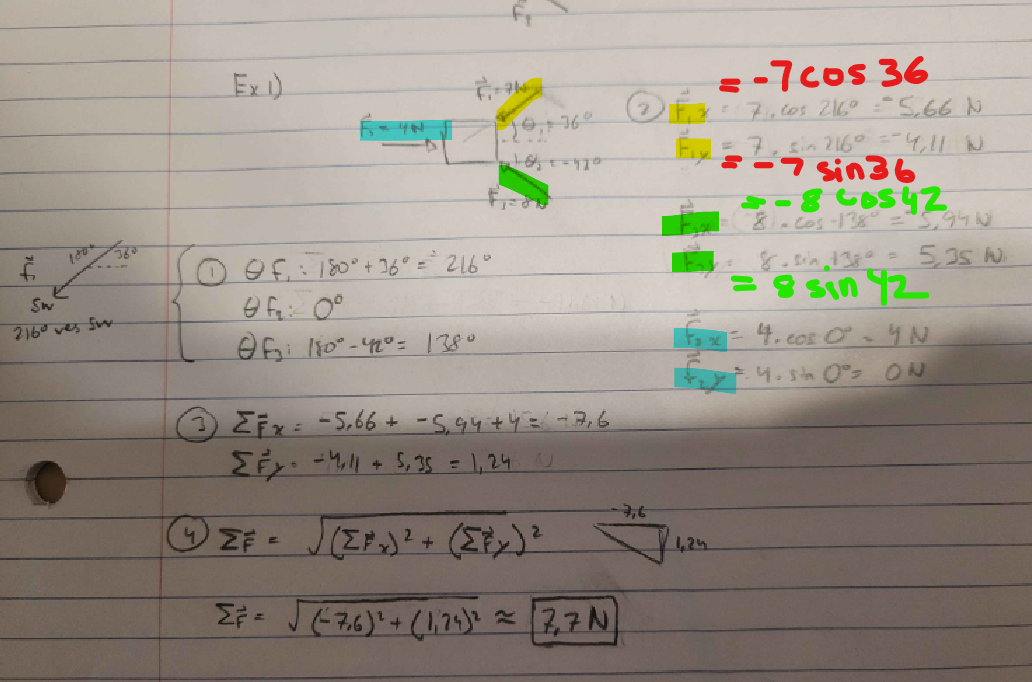 F₁
Ex 1)
F⃗₁ = 7N
θ₁ = 36°
F⃗₂ = 4N
F⃗₃ = 8N
② = -7 cos 36
F⃗₁x = 7 . cos 216° = -5,66 N
F⃗₁y = 7 . sin 216° = -4,11 N
= -7 sin 36
= -8 cos 42
F⃗₃x = 8 . cos -138° = -5,94 N
F⃗₃y = 8 . sin 138° = 5,35 N
= 8 sin 42
F⃗₂x = 4 . cos 0° = 4 N
F⃗₂y = 4 . sin 0° = 0 N
F⃗₁
180°
36°
SW
216° vers SW
① θ F₁ : 180° + 36° = 216°
θ F₂ : 0°
θ F₃ : 180° - 42° = 138°
③ ΣF⃗x = -5,66 + -5,94 + 4 = -7,6
ΣF⃗y = -4,11 + 5,35 = 1,24 N
④ ΣF⃗ = √(ΣF⃗x)² + (ΣF⃗y)²
-7,6
1,24
ΣF⃗ = √(-7,6)² + (1,24)² ≈ 7,7 N